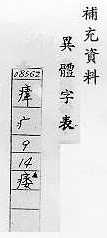 補充資料
異體字表
08562
瘴
疒
9
14
痿▲